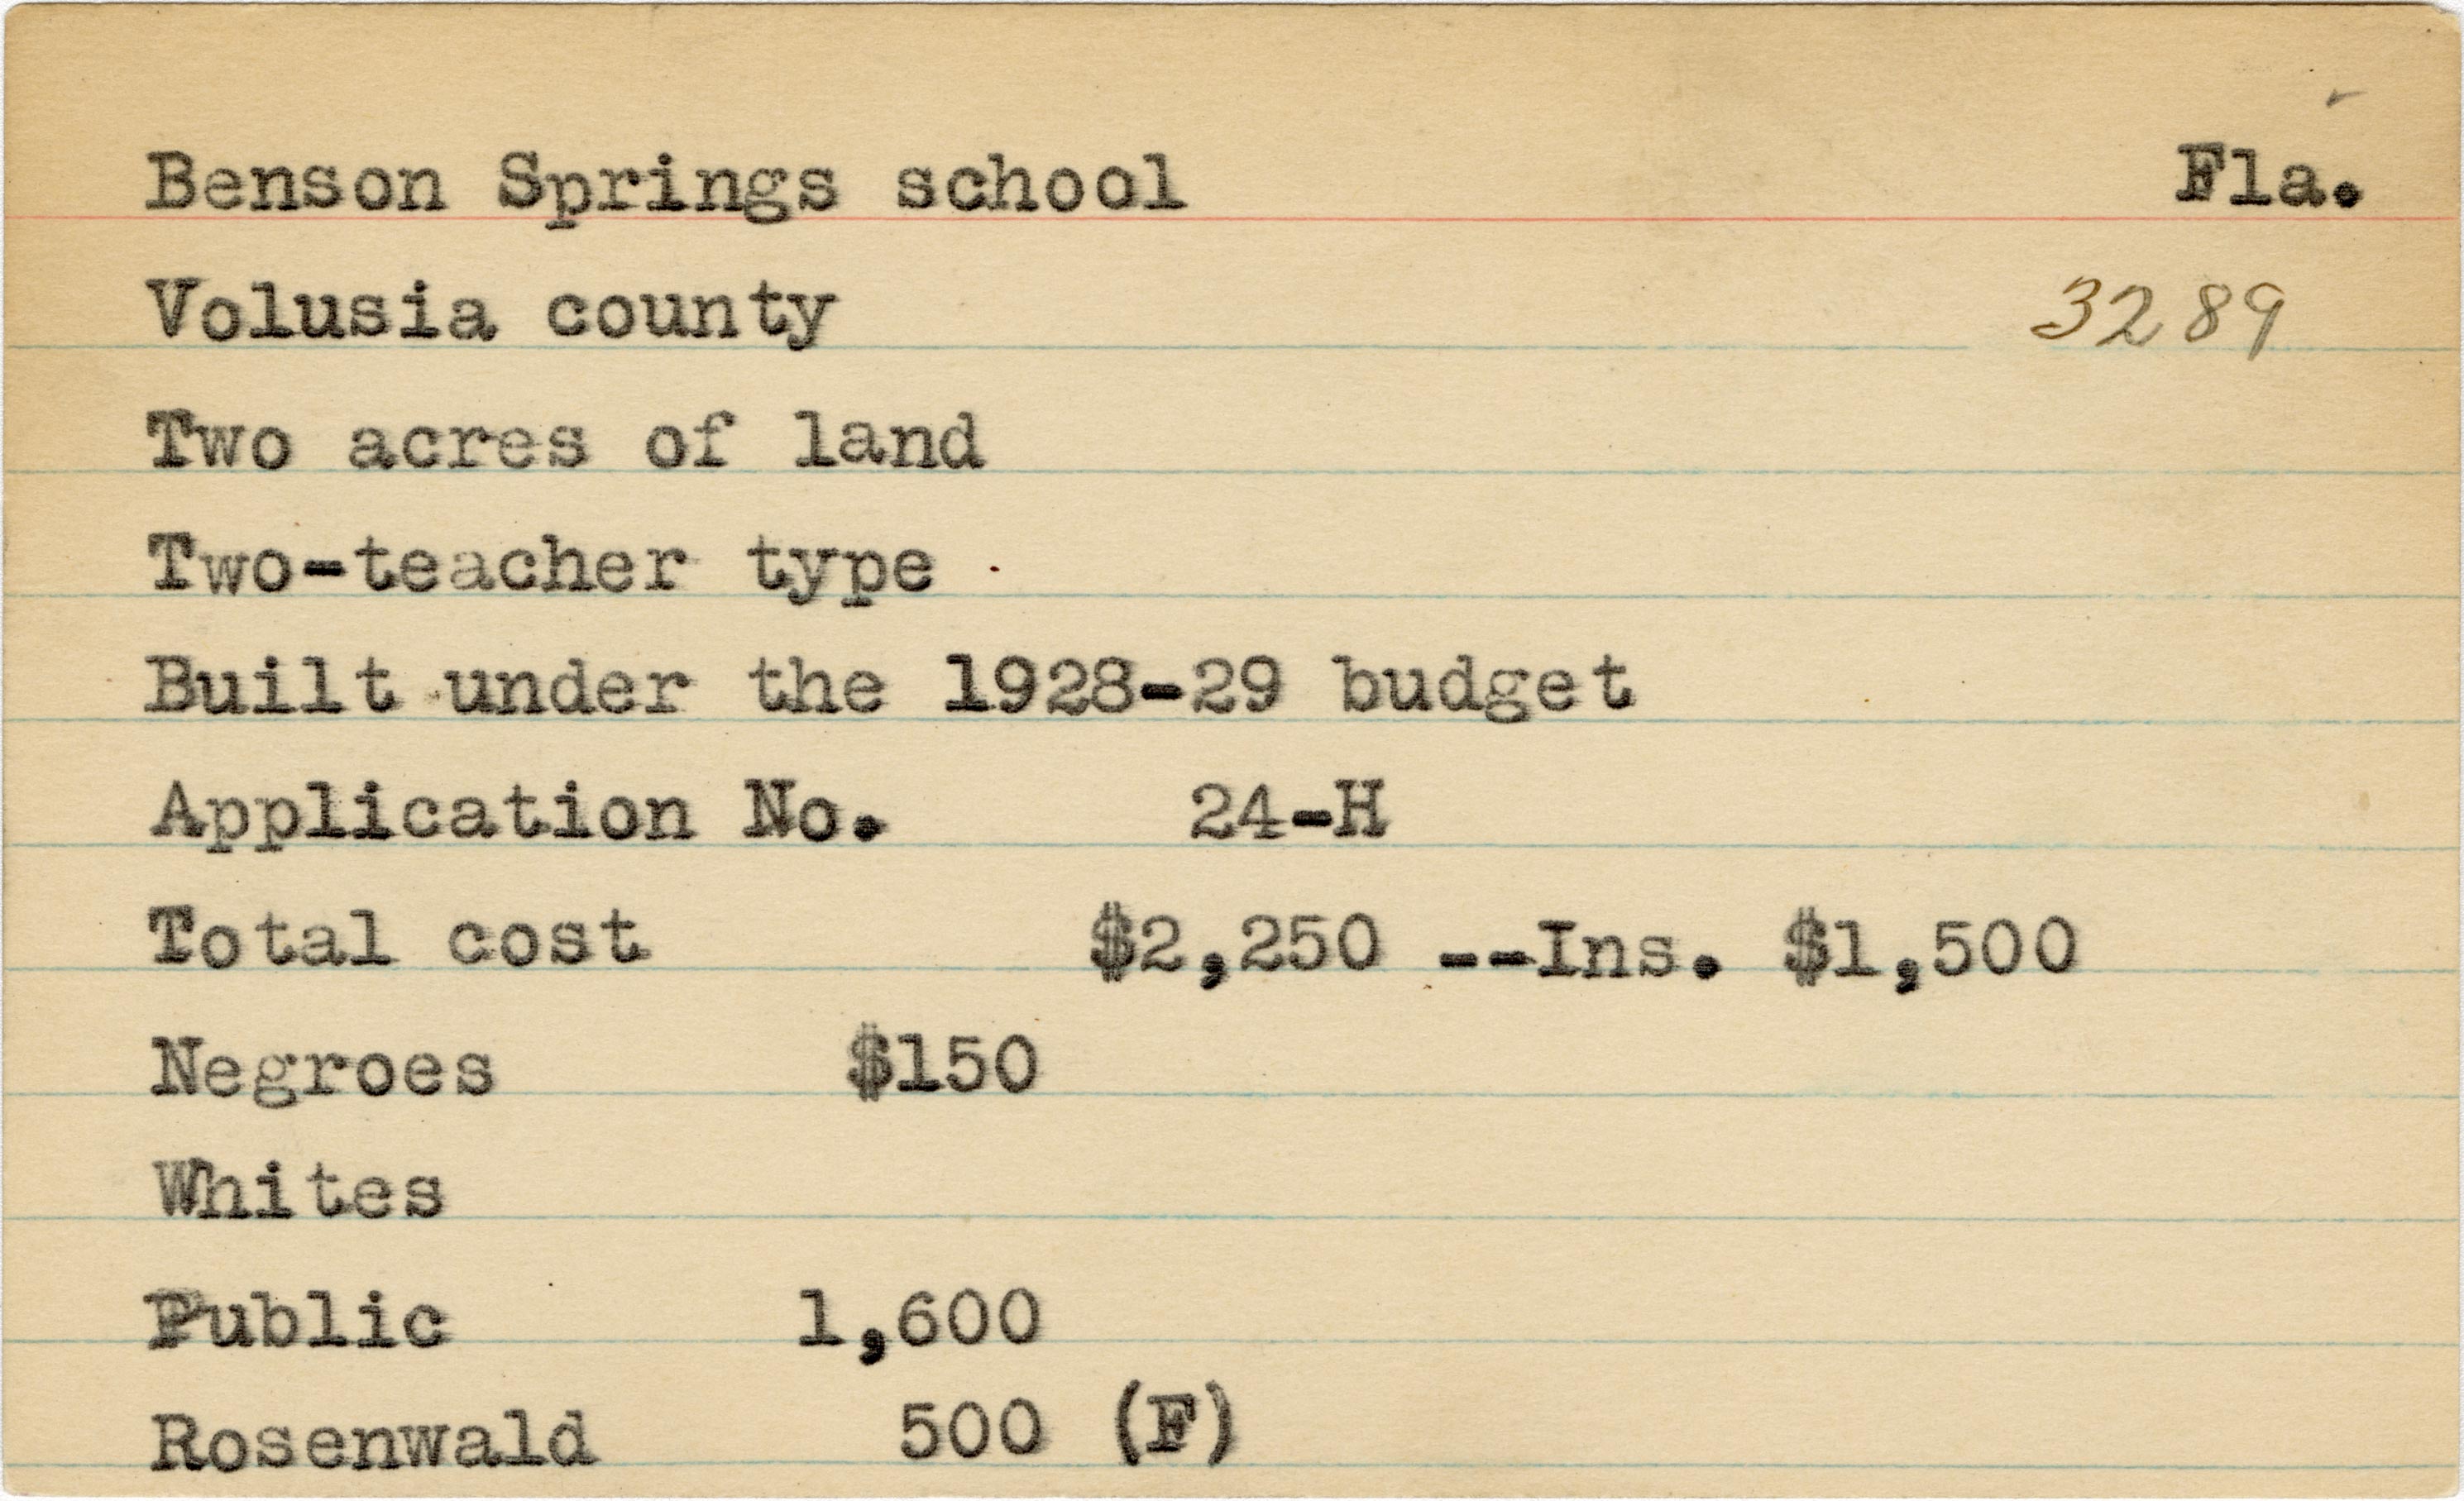 Benson Springs school Fla.
Volusia county 3289
Two acres of land
Two-teacher type
Built under the 1928-29 budget
Application No. 24-H
Total cost $2,250 --Ins. $1,500
Negroes $150
Whites
Public 1,600
Rosenwald 500 (F)